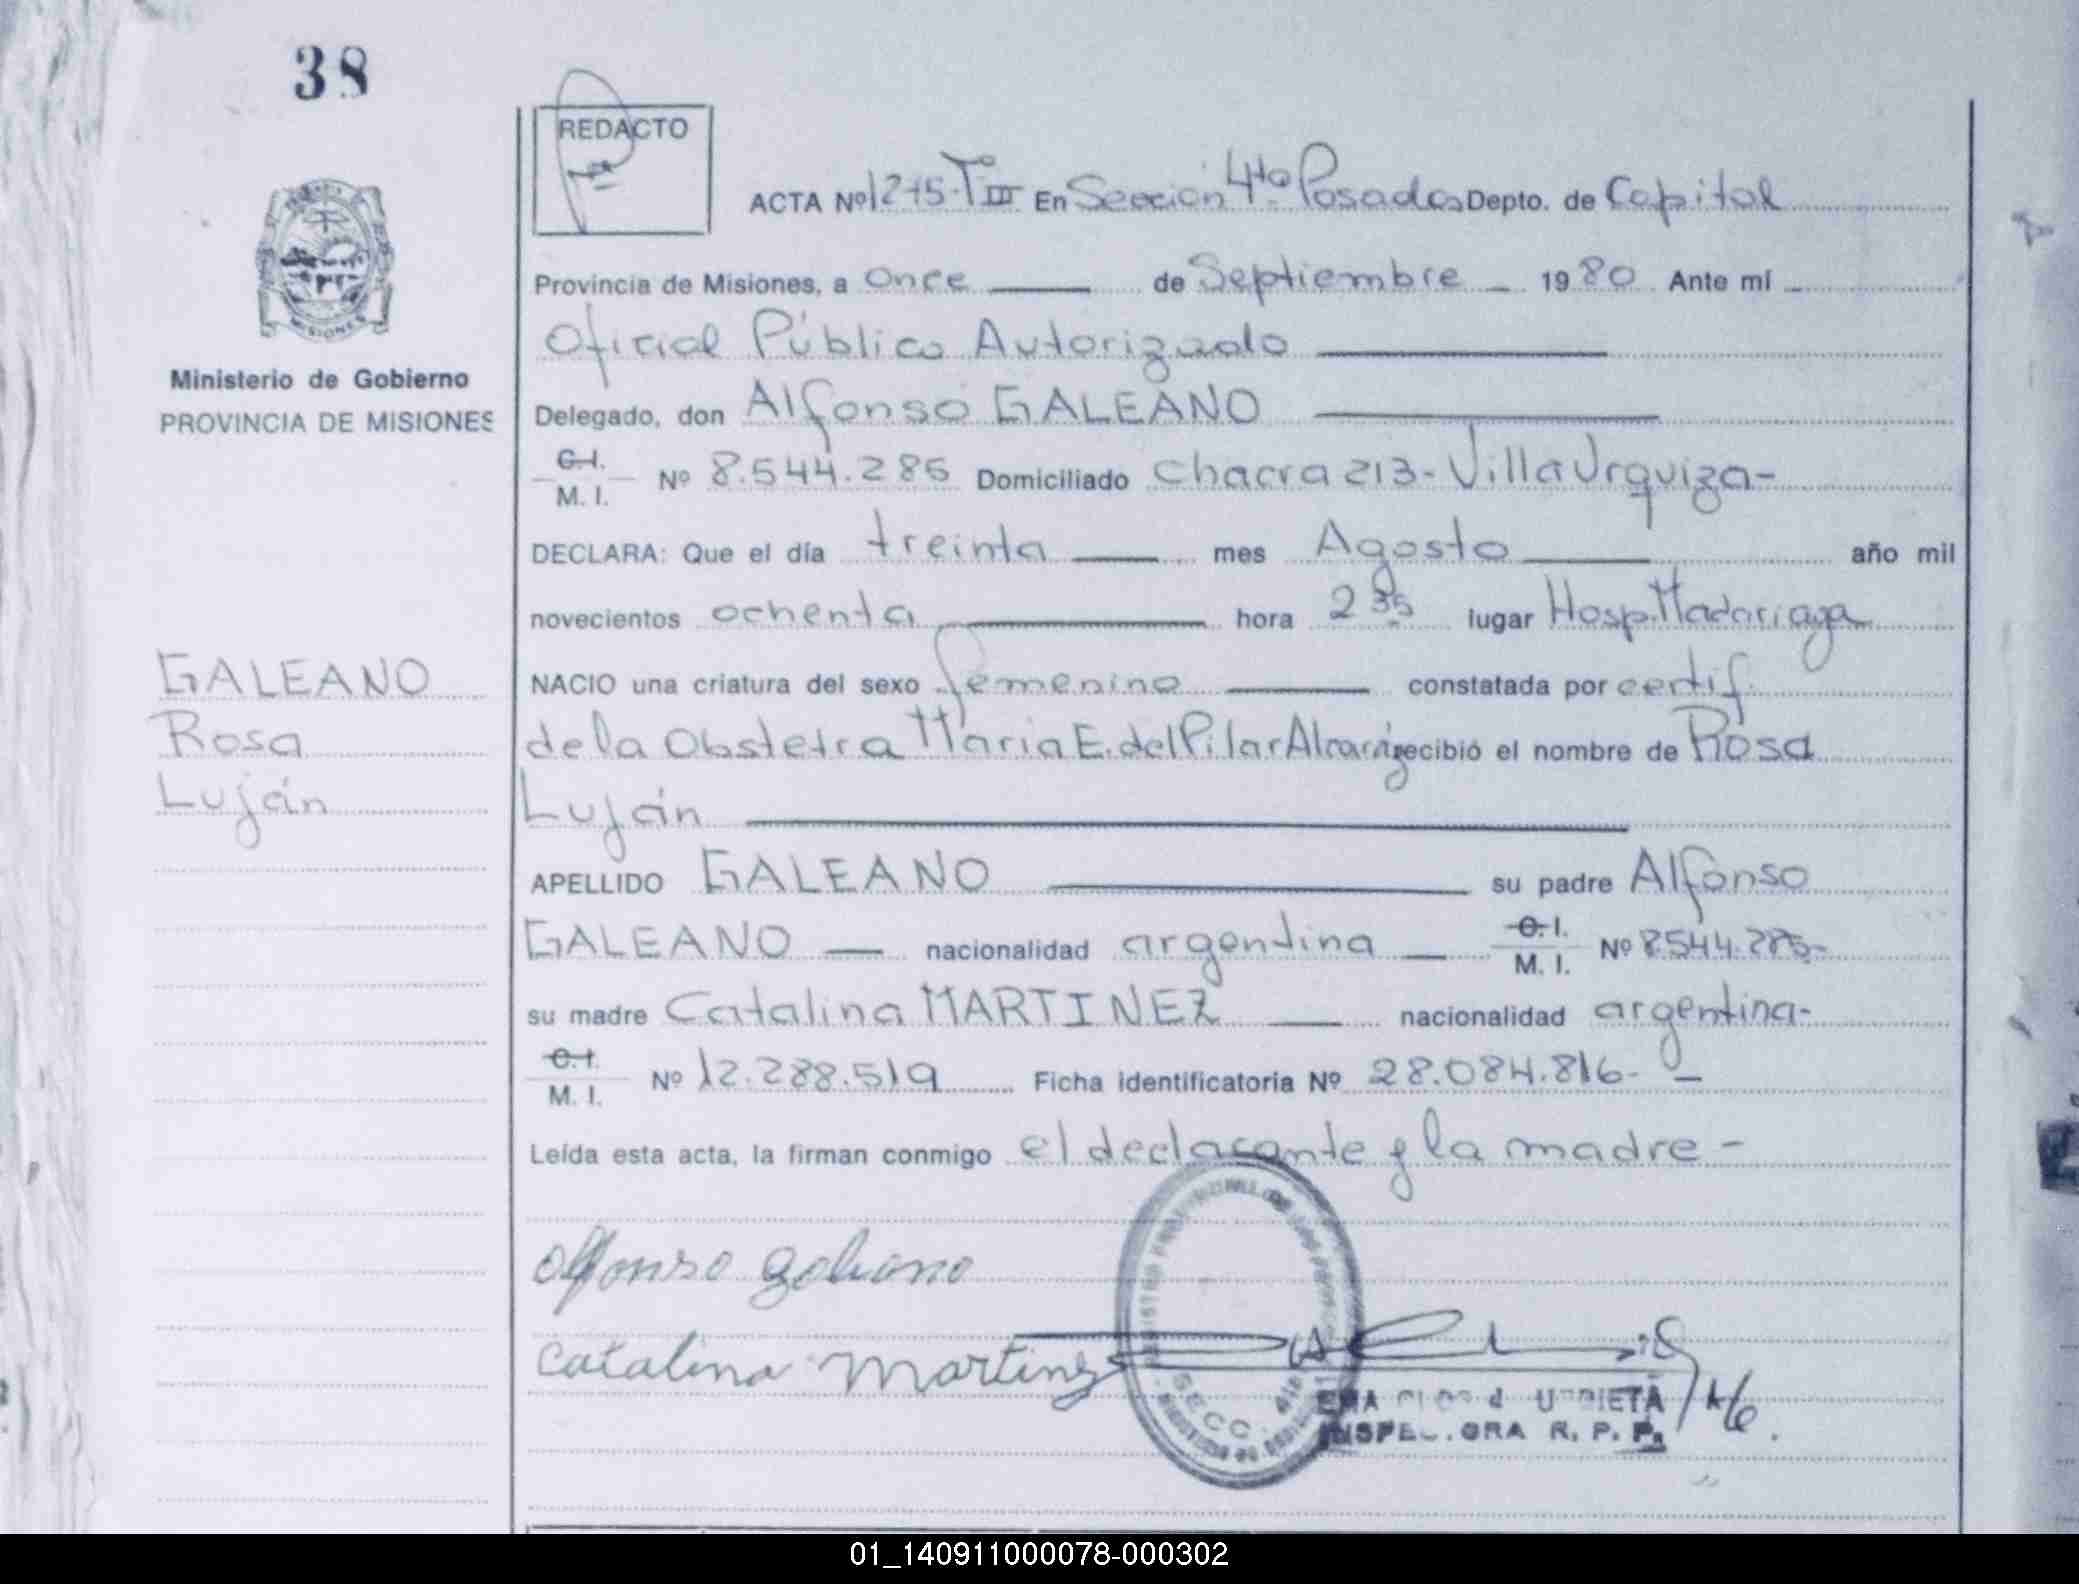 38
REDACTO
ACTA Nº 1215-Tº III En Sección 4ta. Posadas Depto. de Capital
MISIONES
Provincia de Misiones, a once de Septiembre 1980 Ante mí
Oficial Público Autorizado
Ministerio de Gobierno
PROVINCIA DE MISIONES
Delegado, don Alfonso GALEANO
C.I. M. I. Nº 8.544.285 Domiciliado Chacra 213- Villa Urquiza-
DECLARA: Que el día treinta mes Agosto año mil
novecientos ochenta hora 2 35 lugar Hosp. Madariaga
GALEANO
Rosa
Luján
NACIO una criatura del sexo femenino constatada por certif.
de la Obstetra Maria E. del Pilar Alcaráz recibió el nombre de Rosa
Luján
APELLIDO GALEANO su padre Alfonso
GALEANO nacionalidad argentina C.I. M. I. Nº 8544.285-
su madre Catalina MARTINEZ nacionalidad argentina-
C.I. M. I. Nº 12.288.519 Ficha identificatoria Nº 28.084.816-
Leída esta acta, la firman conmigo el declarante y la madre-
alfonso galeano
catalina martinez
SECC.
INSPECTORA R. P. P.
01_140911000078-000302